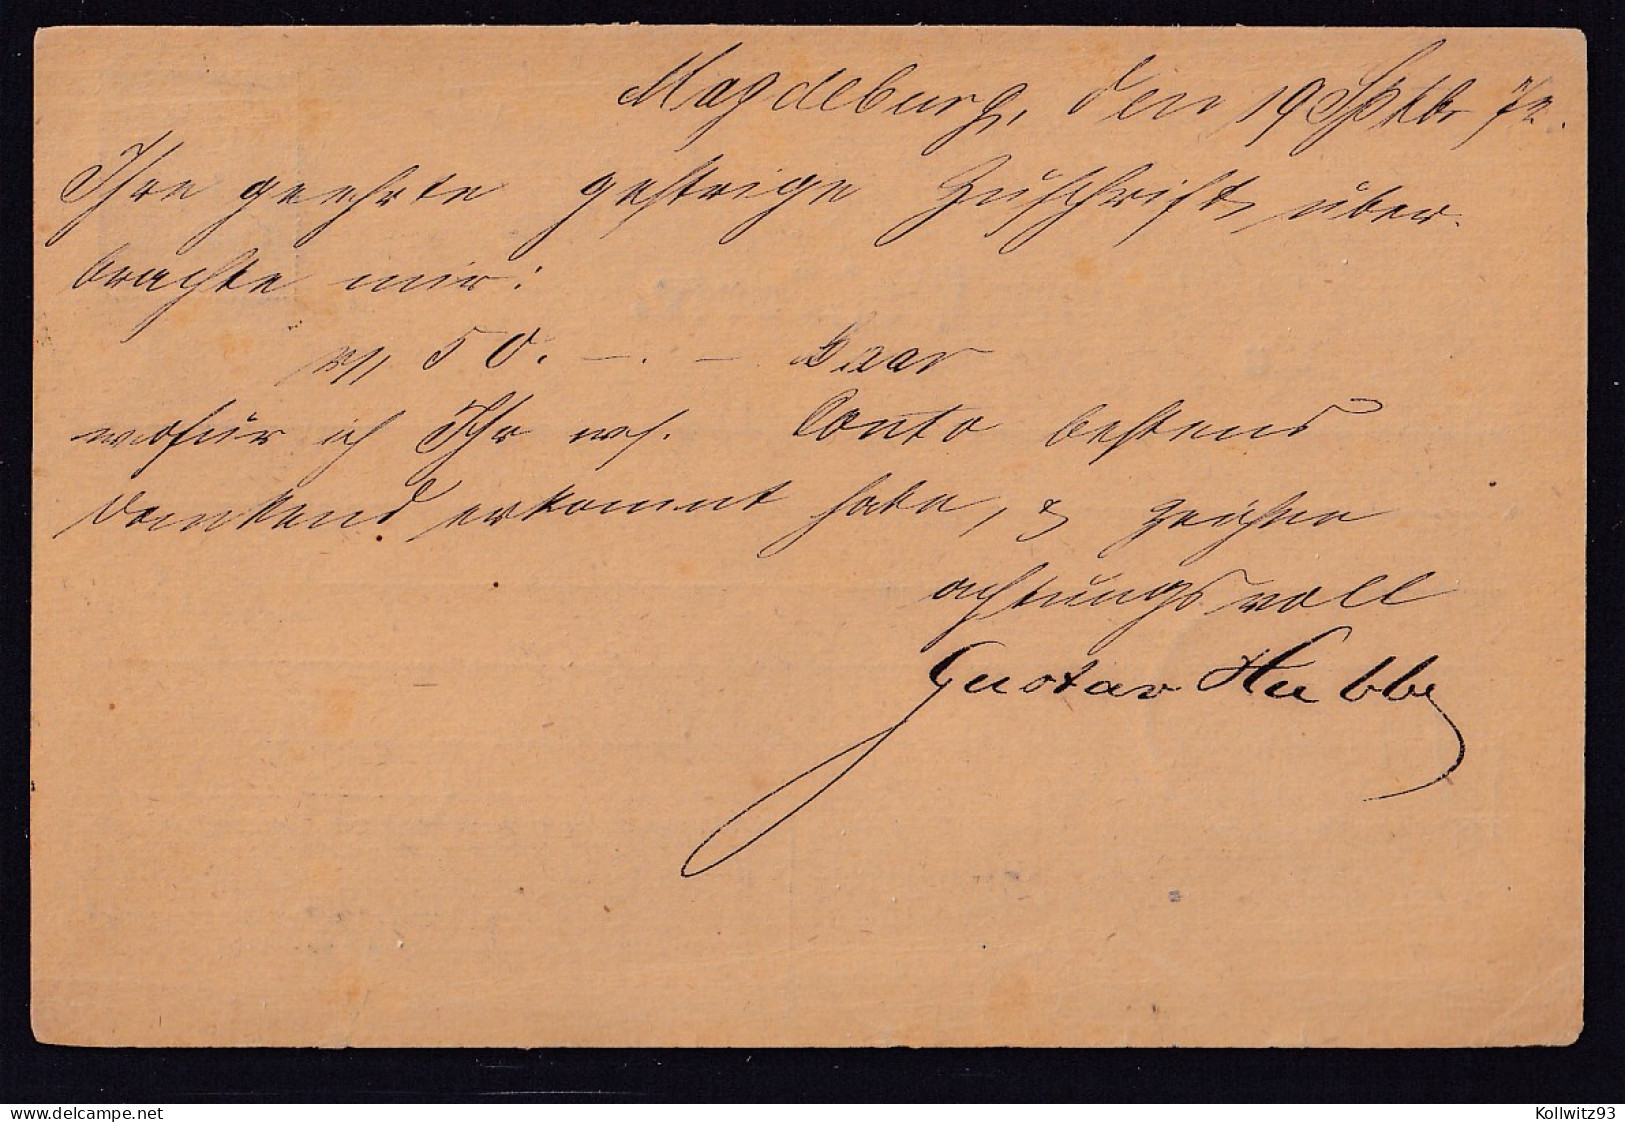 Magdeburg, den 19 Sptbr 72.
Ihre geehrte gestrige Zuschrift über-
brachte mir:
50. —.— Baar
wofür ich Ihr Conto bestens
dankend erkannt habe, & zeichne
achtungsvoll
Gustav Hubbe
www.delcampe.net
Kollwitz93